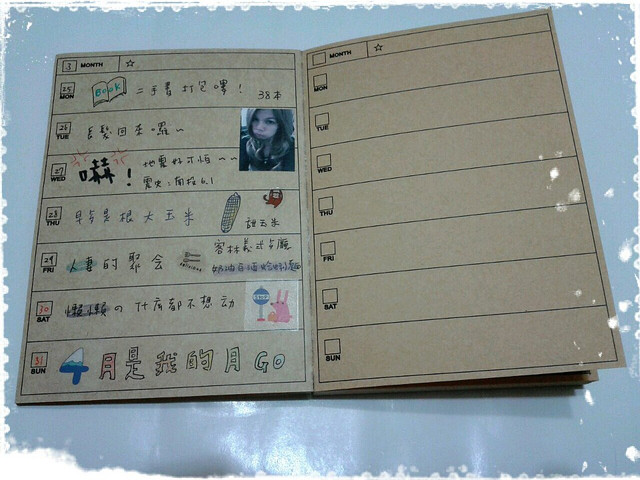 3 MONTH ☆
25 MON BOOK 二手書打包嘍! 38本
26 TUE 長髮回來囉~
27 WED 嚇! 地震好可怕~~
震央:南投6.1
28 THU 早餐是根大玉米 甜玉米
29 FRI 人妻的聚会 客林義式餐廳
30 SAT 懶懶の什麼都不想动
31 SUN 4月是我的月GO
MONTH ☆
MON
TUE
WED
THU
FRI
SAT
SUN